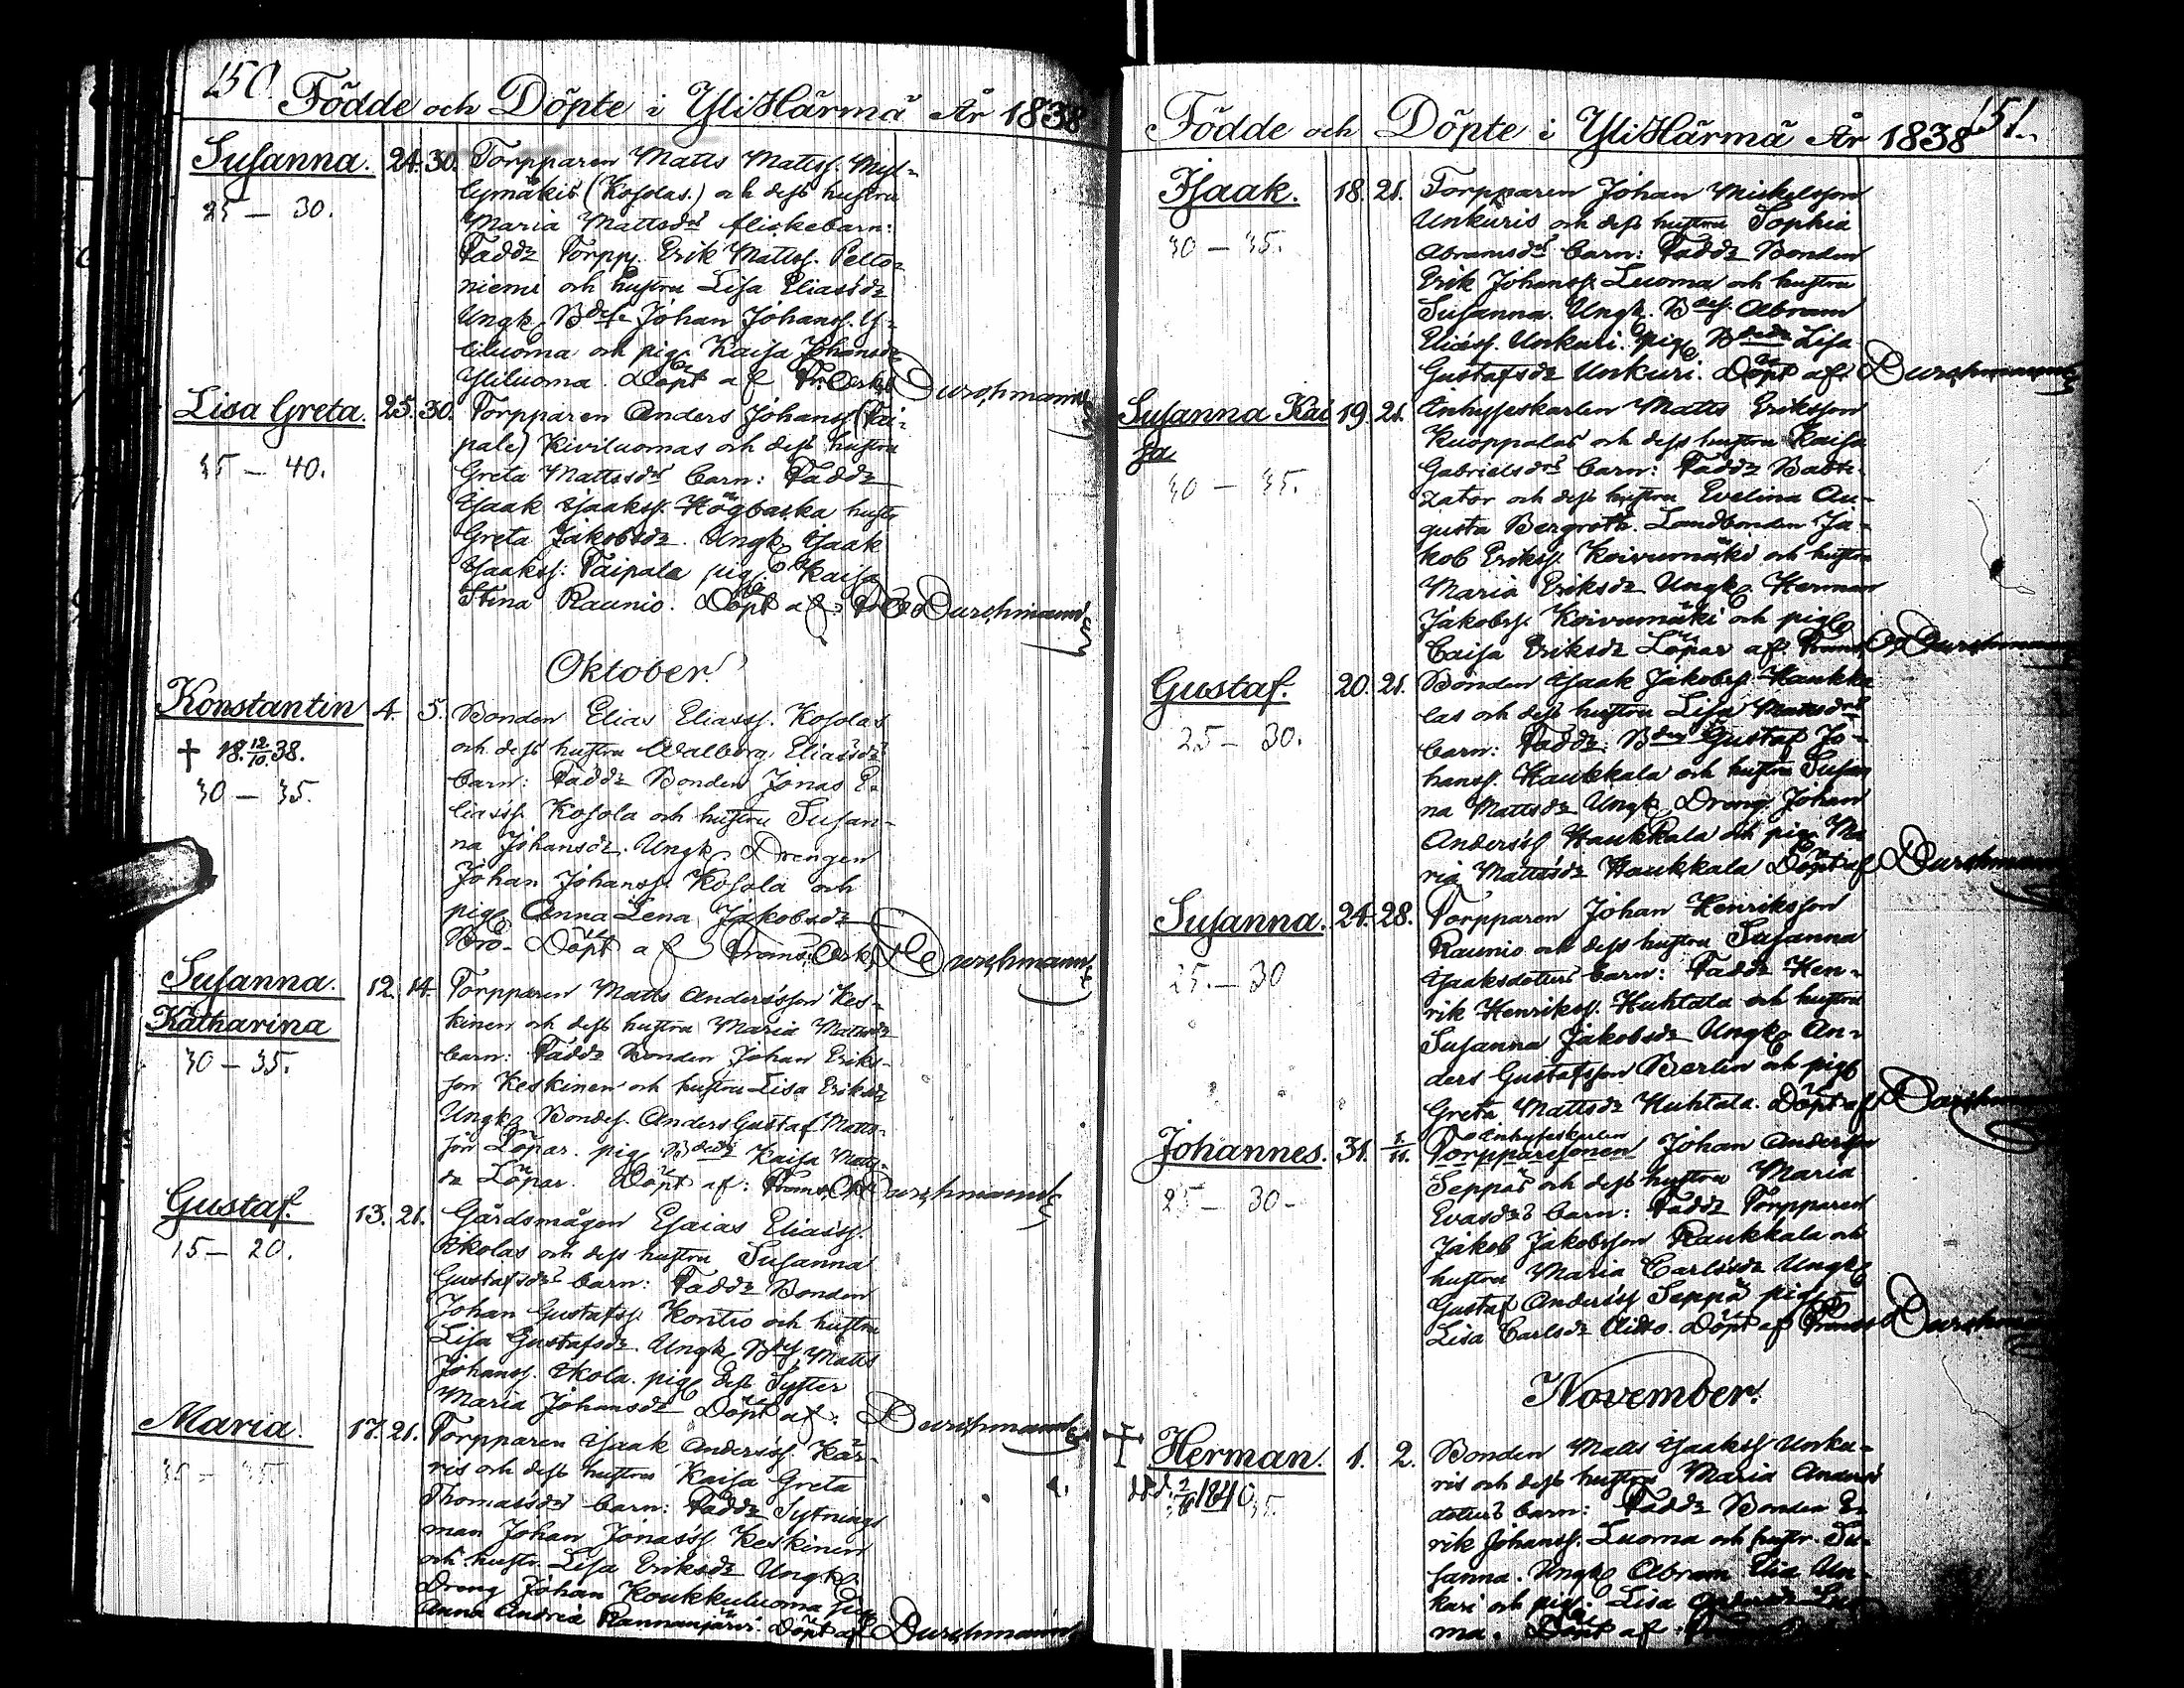 150.
Födde och Döpte i YliHärmä År 1838
Susanna. 24. 30. Torpparen Matts Mattss. Myl-
25 — 30.
lymäkis (Kosolas.) och dess hustru
Maria Mattsdrs flickebarn:
Fadd: Torpp. Erik Mattss. Pelto-
niemi och hustru Lisa Eliasdr
Ungk. Bdes. Johan Johanss. Y-
liluoma och pig. Kaisa Johansdr
Yliluoma. Döpt af Durchman
Lisa Greta. 25. 30. Torpparen Anders Johanss (Tai-
35 — 40.
pale) Kiviluomas och dess hustru
Greta Mattsdrs barn: Fadd:
Isaak Isaakss. Högbacka hustr
Greta Jakobsdr. Ungk. Isaak
Isaakss: Taipala pig. Kaisa
Stina Raunio. Döpt af: Durchman
Oktober.
Konstantin 4. 5. Bonden Elias Eliass. Kosolas
† 18 12/10 38.
och dess hustru Walborg Eliasdrs
30 — 35.
barn: Fadd: Bonden Jonas E-
liass. Kosola och hustru Susan-
na Johansdr. Ungk. Drengen
Johan Johanss. Kosola och
pig. Anna Lena Jakobsdr
Bro. Döpt af Durchman
Susanna. 12. 14. Torpparen Matts Andersson Kes-
Katharina
kinen och dess hustru Maria Mattsdr
30 — 35.
barn: Fadd: Bonden Johan Eriks-
son Keskinen och hustru Lisa Eriksdr
Ungk. Bondes. Anders Gustaf Matts-
son Löpar. pig. Kaisa Matts-
dr Löpar. Döpt af: Durchman
Gustaf. 13. 21. Gårdsmågen Esaias Eliass.
15 — 20.
Ikolas och dess hustru Susanna
Gustafsdrs barn: Fadd: Bonden
Johan Gustafss. Kontio och hustru
Lisa Gustafsdr. Ungk. Bdes. Matts
Johanss. Ikola. pig. dess Syster
Maria Johansdr Döpt af: Durchman
Maria. 17. 21. Torpparen Isaak Anderss. Kär-
ris och dess hustru Kaisa Greta
Thomasdrs barn: Fadd: Sytnings
man Johan Jonass Keskinen
och hustr. Lisa Eriksdr Ungk.
Dreng Johan Koukkuluoma pig
Anna Andrea Rannanjärvi. Döpt af Durchman
151.
Födde och Döpte i YliHärmä År 1838
Isaak. 18. 21. Torpparen Johan Mickelsson
Unkuris och dess hustru Sophia
30 — 35.
Abramsdrs barn: Fadd: Bonden
Erik Johanss. Luoma och hustru
Susanna. Ungk. Bdes. Abram
Eliass. Unkuri. pig. Lisa
Gustafsdr Unkuri. Döpt af: Durchman
Susanna Kai 19. 21. Inhyseskarlen Matts Eriksson
sa
Kuoppalas och dess hustru Kaisa
30 — 35.
Gabrielsdrs barn: Fadd:
zator och dess hustru Evelina Au-
gusta Bergroth. Landbonden Ja-
kob Erikss. Koivumäki och hustru
Maria Eriksdr Ungk. Herman
Jakobss. Koivumäki och pig.
Caisa Eriksdr Löpar af Durchman
Gustaf. 20. 21. Bonden Isaak Jakobss. Haukka
25 — 30.
las och dess hustru Lisa Mattsdrs
barn: Fadd: Gustaf Jo-
hanss. Haukkala och hustru Susan
na Mattsdr Ungk. Dreng. Johan
Anderss Haukkala och pig. Ma
ria Mattsdr Haukkala Döpt af Durchman
Susanna. 24. 28. Torpparen Johan Henriksson
25 — 30
Raunio och dess hustru Susanna
Isaaksdoters barn: Fadd: Hen-
rik Henrikss. Huhtala och hustru
Susanna Jakobsdr Ungk. An-
ders Gustafsson Berlin och pig.
Greta Mattsdr Huhtala. Döpt af Durchman
Inhyseskarlen
Johannes. 31. 1/11. Torpparesonen Johan Andersson
25 — 30 -
Seppäs och dess hustru Maria
Evasdrs barn: Fadd: Torpparen
Jakob Jakobsson Raukkala och
hustru Maria Carlsdr Ungk.
Gustaf Anderss Seppä pig.
Lisa Carlsdr Döpt af Durchman
November.
† Herman. 1. 2. Bonden Matts Isaakss Unku-
död 1840
ris och dess hustru Maria Anders
doters barn: Fadd: Bonden E-
rik Johanss. Luoma och hustr. Su-
sanna. Ungk. Abram Elia Un-
kuri och pig. Lisa Luo
ma. Döpt af